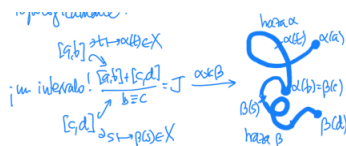 [a,b] ∋ t ↦ α(t) ∈ X
¡un intervalo! [a,b]+[c,d] / b ≡ c = J α*β →
[c,d] ∋ s ↦ β(s) ∈ X
haza α
α(t)
α(a)
α(b)=β(c)
β(s)
haza β
β(d)